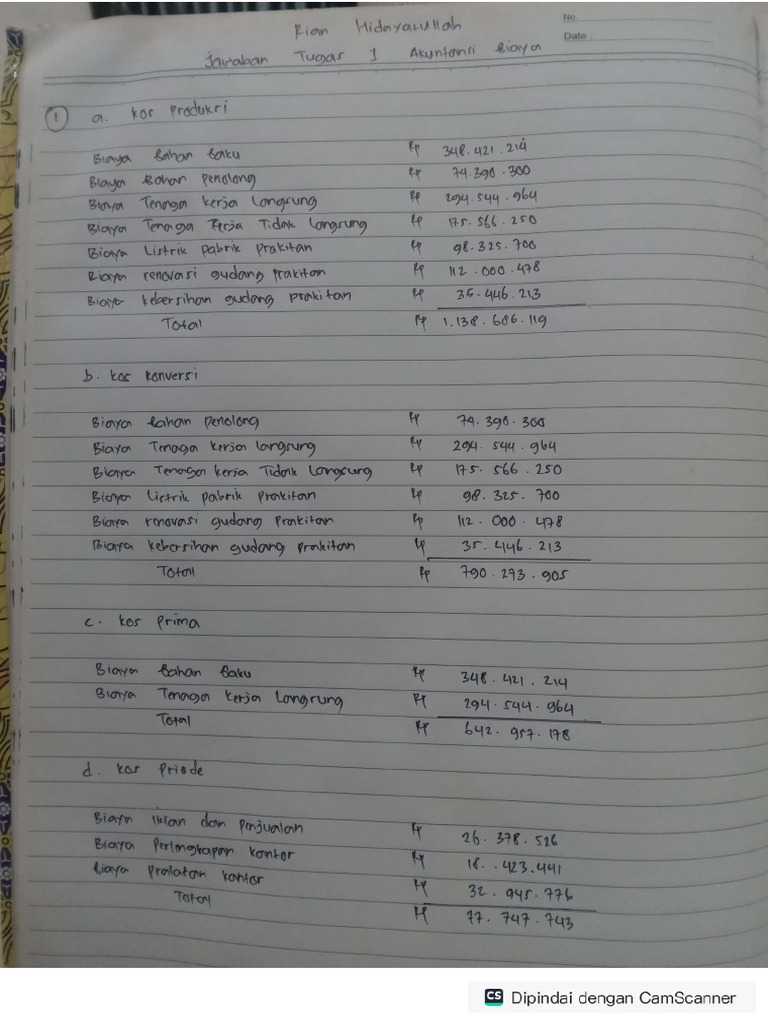 Rian Hidayatullah
No.
Date :
Jawaban Tugas 1 Akuntansi Biaya
1 a. Kos Produksi
Biaya Bahan Baku Rp 348.421.214
Biaya Bahan Penolong Rp 74.390.300
Biaya Tenaga Kerja Langsung Rp 294.544.964
Biaya Tenaga Kerja Tidak Langsung Rp 175.566.250
Biaya Listrik Pabrik Prakitan Rp 98.325.700
Biaya renovasi gudang Prakitan Rp 112.000.478
Biaya kebersihan gudang prakitan Rp 35.446.213
Total Rp 1.138.686.119
b. Kos Konversi
Biaya Bahan Penolong Rp 74.390.300
Biaya Tenaga Kerja Langsung Rp 294.544.964
Biaya Tenaga Kerja Tidak Langsung Rp 175.566.250
Biaya Listrik Pabrik Prakitan Rp 98.325.700
Biaya renovasi gudang Prakitan Rp 112.000.478
Biaya kebersihan gudang Prakitan Rp 35.446.213
Total Rp 790.273.905
c. Kos Prima
Biaya Bahan Baku Rp 348.421.214
Biaya Tenaga Kerja Langsung Rp 294.544.964
Total Rp 642.957.178
d. Kos Priode
Biaya Iklan dan Penjualan Rp 26.378.526
Biaya Perlengkapan Kantor Rp 18.423.441
Biaya Pralatan Kantor Rp 32.945.776
Total Rp 77.747.743
CS Dipindai dengan CamScanner